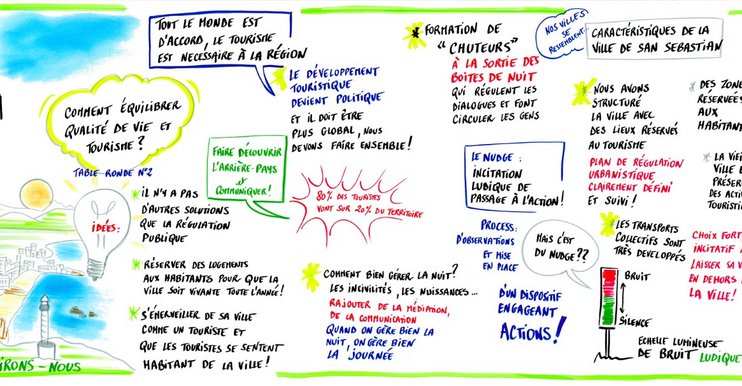 TOUT LE MONDE EST
D'ACCORD, LE TOURISME
EST NECESSAIRE À LA RÉGION
COMMENT ÉQUILIBRER
QUALITÉ DE VIE ET
TOURISME ?
TABLE-RONDE N°2
IDÉES:
IL N'Y A PAS
D'AUTRES SOLUTIONS
QUE LA RÉGULATION
PUBLIQUE
RÉSERVER DES LOGEMENTS
AUX HABITANTS POUR QUE LA
VILLE SOIT VIVANTE TOUTE L'ANNÉE!
S'ÉMERVEILLER DE SA VILLE
COMME UN TOURISTE ET
QUE LES TOURISTES SE SENTENT
HABITANT DE LA VILLE !
IRONS-NOUS
LE DÉVELOPPEMENT
TOURISTIQUE
DEVIENT POLITIQUE
ET IL DOIT ÊTRE
PLUS GLOBAL, NOUS
DEVONS FAIRE ENSEMBLE!
FAIRE DÉCOUVRIR
L'ARRIÈRE-PAYS
ET
COMMUNIQUER!
80% DES TOURISTES
VONT SUR 20% DU TERRITOIRE
COMMENT BIEN GÉRER LA NUIT?
LES INCIVILITÉS, LES NUISSANCES...
RAJOUTER DE LA MÉDIATION,
DE LA COMMUNICATION
QUAND ON GÈRE BIEN LA
NUIT, ON GÈRE BIEN
LA JOURNÉE
FORMATION DE
"CHUTEURS"
À LA SORTIE DES
BOÎTES DE NUIT
QUI RÉGULENT LES
DIALOGUES ET FONT
CIRCULER LES GENS
LE NUDGE:
INCITATION
LUDIQUE DE
PASSAGE À L'ACTION!
PROCESS:
D'OBSERVATIONS
ET MISE
EN PLACE
D'UN DISPOSITIF
ENGAGEANT
ACTIONS!
MAIS C'EST
DU NUDGE??
NOS VILLES
SE
RESSEMBLENT
CARACTÉRISTIQUES DE LA
VILLE DE SAN SEBASTIAN
NOUS AVONS
STRUCTURÉ
LA VILLE AVEC
DES LIEUX RÉSERVÉS
AU TOURISME
PLAN DE RÉGULATION
URBANISTIQUE
CLAIREMENT DÉFINI
ET SUIVI !
LES TRANSPORTS
COLLECTIFS SONT
TRÈS DÉVELOPPÉS
BRUIT
SILENCE
ECHELLE LUMINEUSE
DE BRUIT LUDIQUE
DES ZONE
RESERVEES
AUX
HABITANT
LA VIEI
VILLE D
PRÉSER
DES ACTI
TOURISTI
CHOIX FORT
INCITATIF A
LAISSER SA V
EN DEHORS D
LA VILLE !